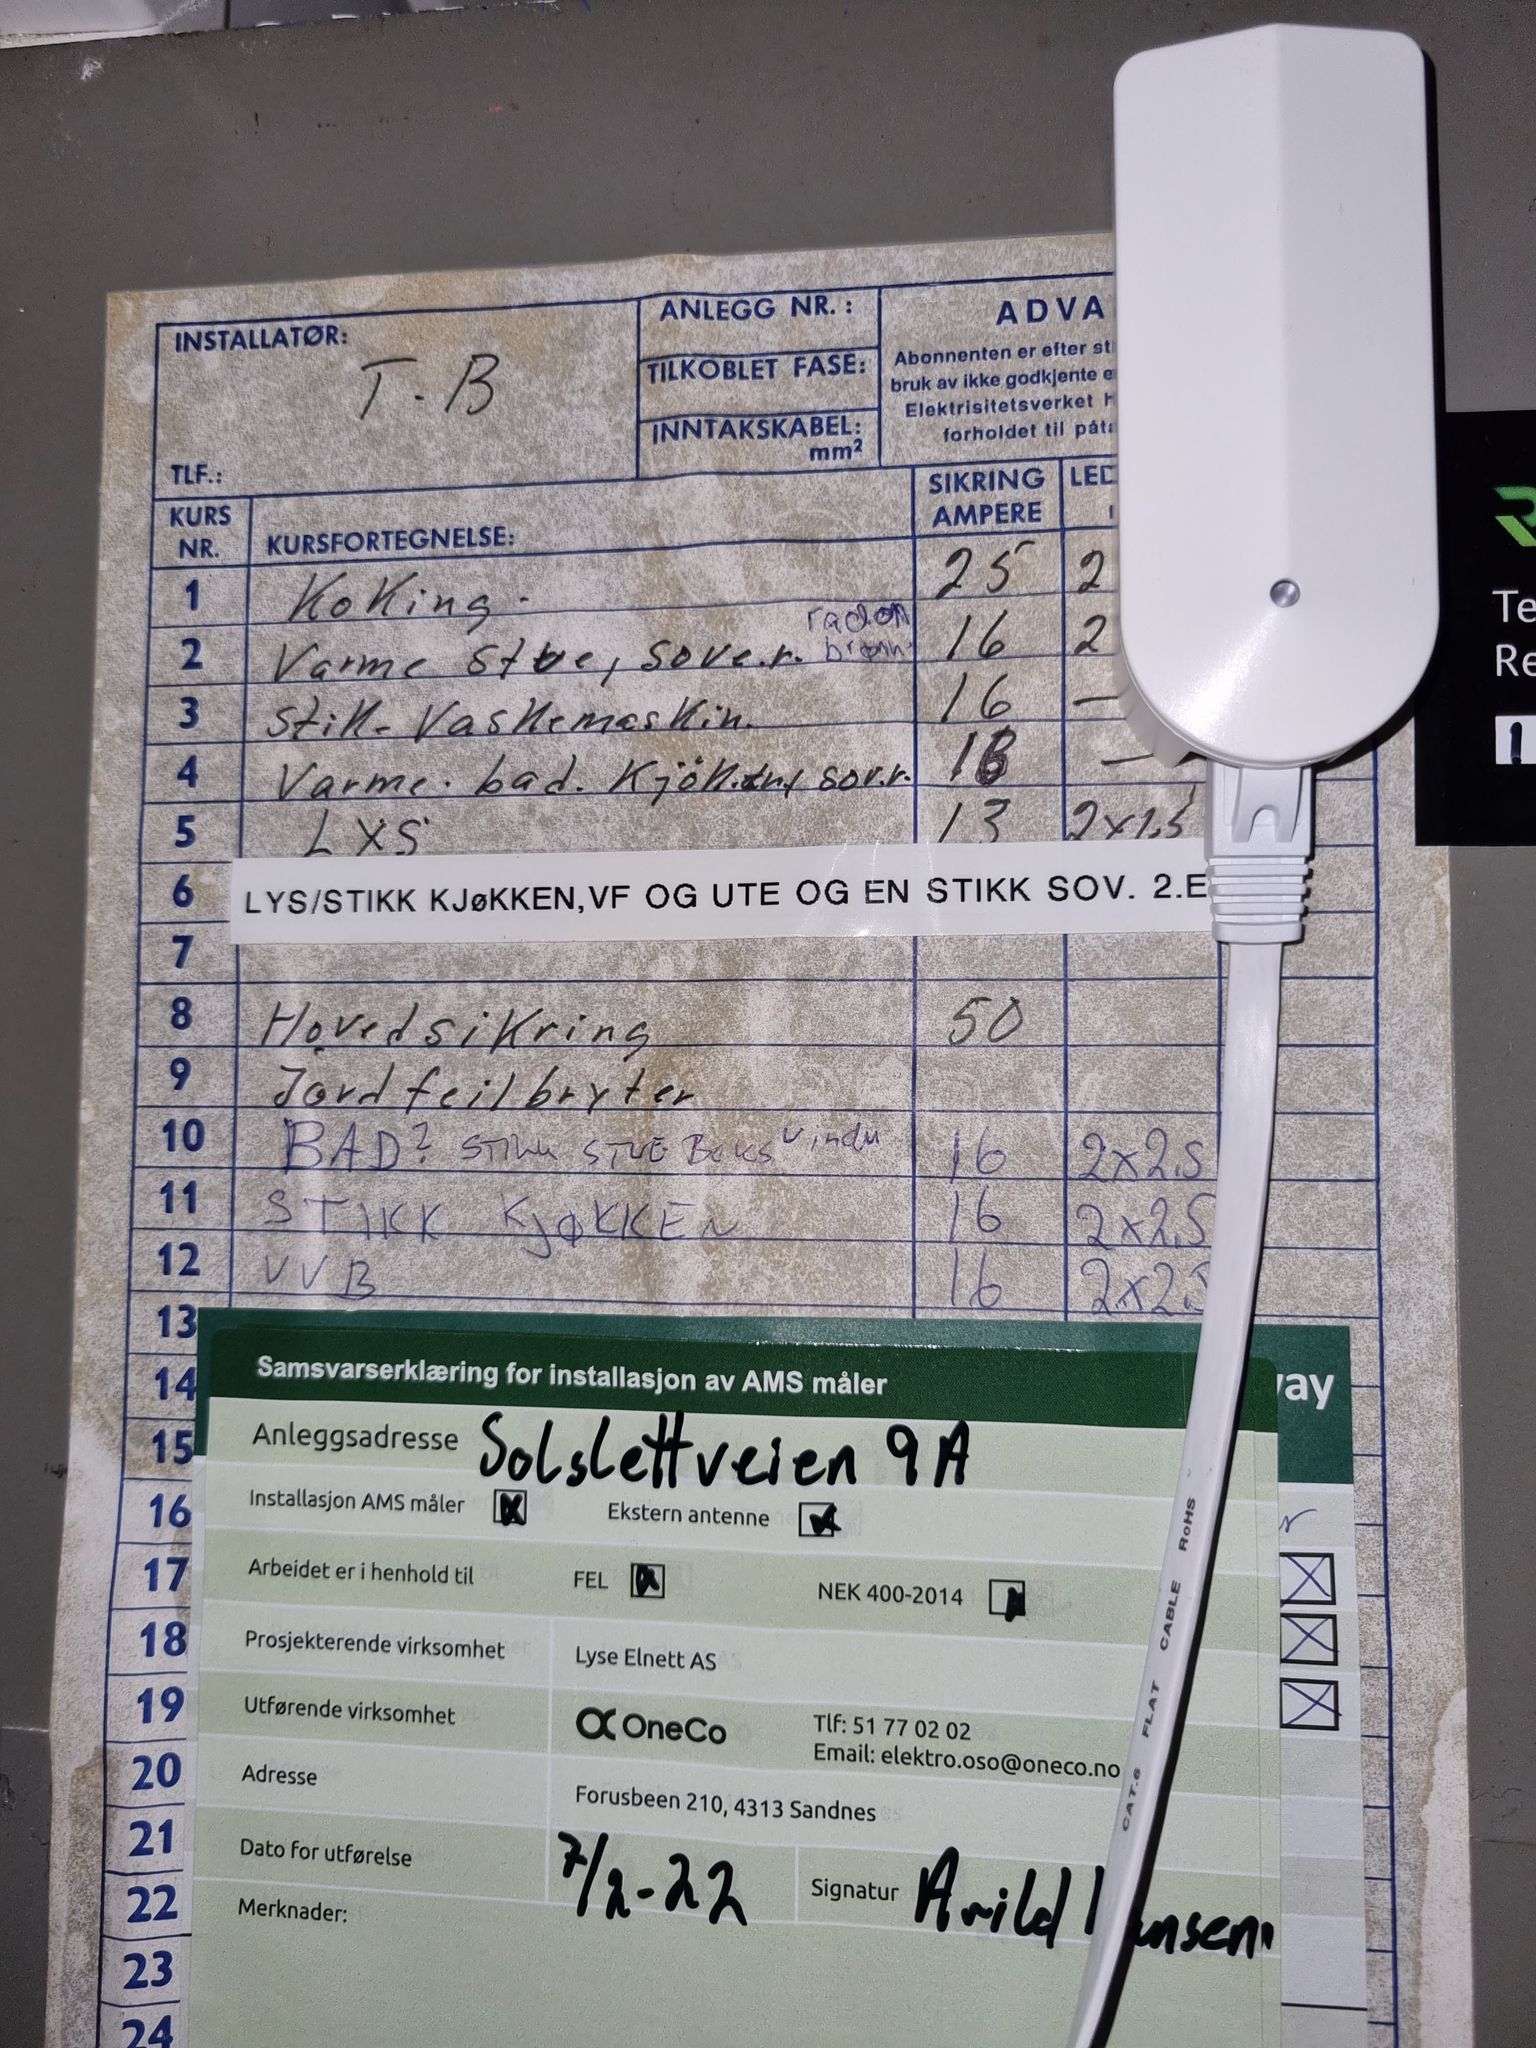 INSTALLATØR:
T.B
TLF.:
ANLEGG NR.:
TILKOBLET FASE:
INNTAKSKABEL:
mm²
ADVA
Abonnenten er efter st
bruk av ikke godkjente e
Elektrisitetsverket
forholdet til påta
KURS NR. KURSFORTEGNELSE: SIKRING AMPERE LED
1 Koking. 25 2
2 Varme stue, sove.r. radon brønn 16 2
3 Stik- Vaskemaskin. 16 —
4 Varme. bad. Kjökken, sov.r. 16 —
5 LYS 13 2x1,5
6 LYS/STIKK KJøKKEN,VF OG UTE OG EN STIKK SOV. 2.E
7
8 Hovedsikring 50
9 Jordfeilbryter
10 BAD? STIKK STUE vindu 16 2x2.5
11 STIKK KJØKKEN 16 2x2,5
12 VVB 16 2x2.5
13
14
15
16
17
18
19
20
21
22
23
24
Samsvarserklæring for installasjon av AMS måler
way
Anleggsadresse Solslettveien 9A
Installasjon AMS måler Ekstern antenne
Arbeidet er i henhold til FEL NEK 400-2014
Prosjekterende virksomhet Lyse Elnett AS
Utførende virksomhet OneCo Tlf: 51 77 02 02
Email: elektro.oso@oneco.no
Adresse Forusbeen 210, 4313 Sandnes
Dato for utførelse 7/2-22 Signatur Arild Hansen
Merknader:
CAT.6 FLAT CABLE RoHS
Te
Re
1